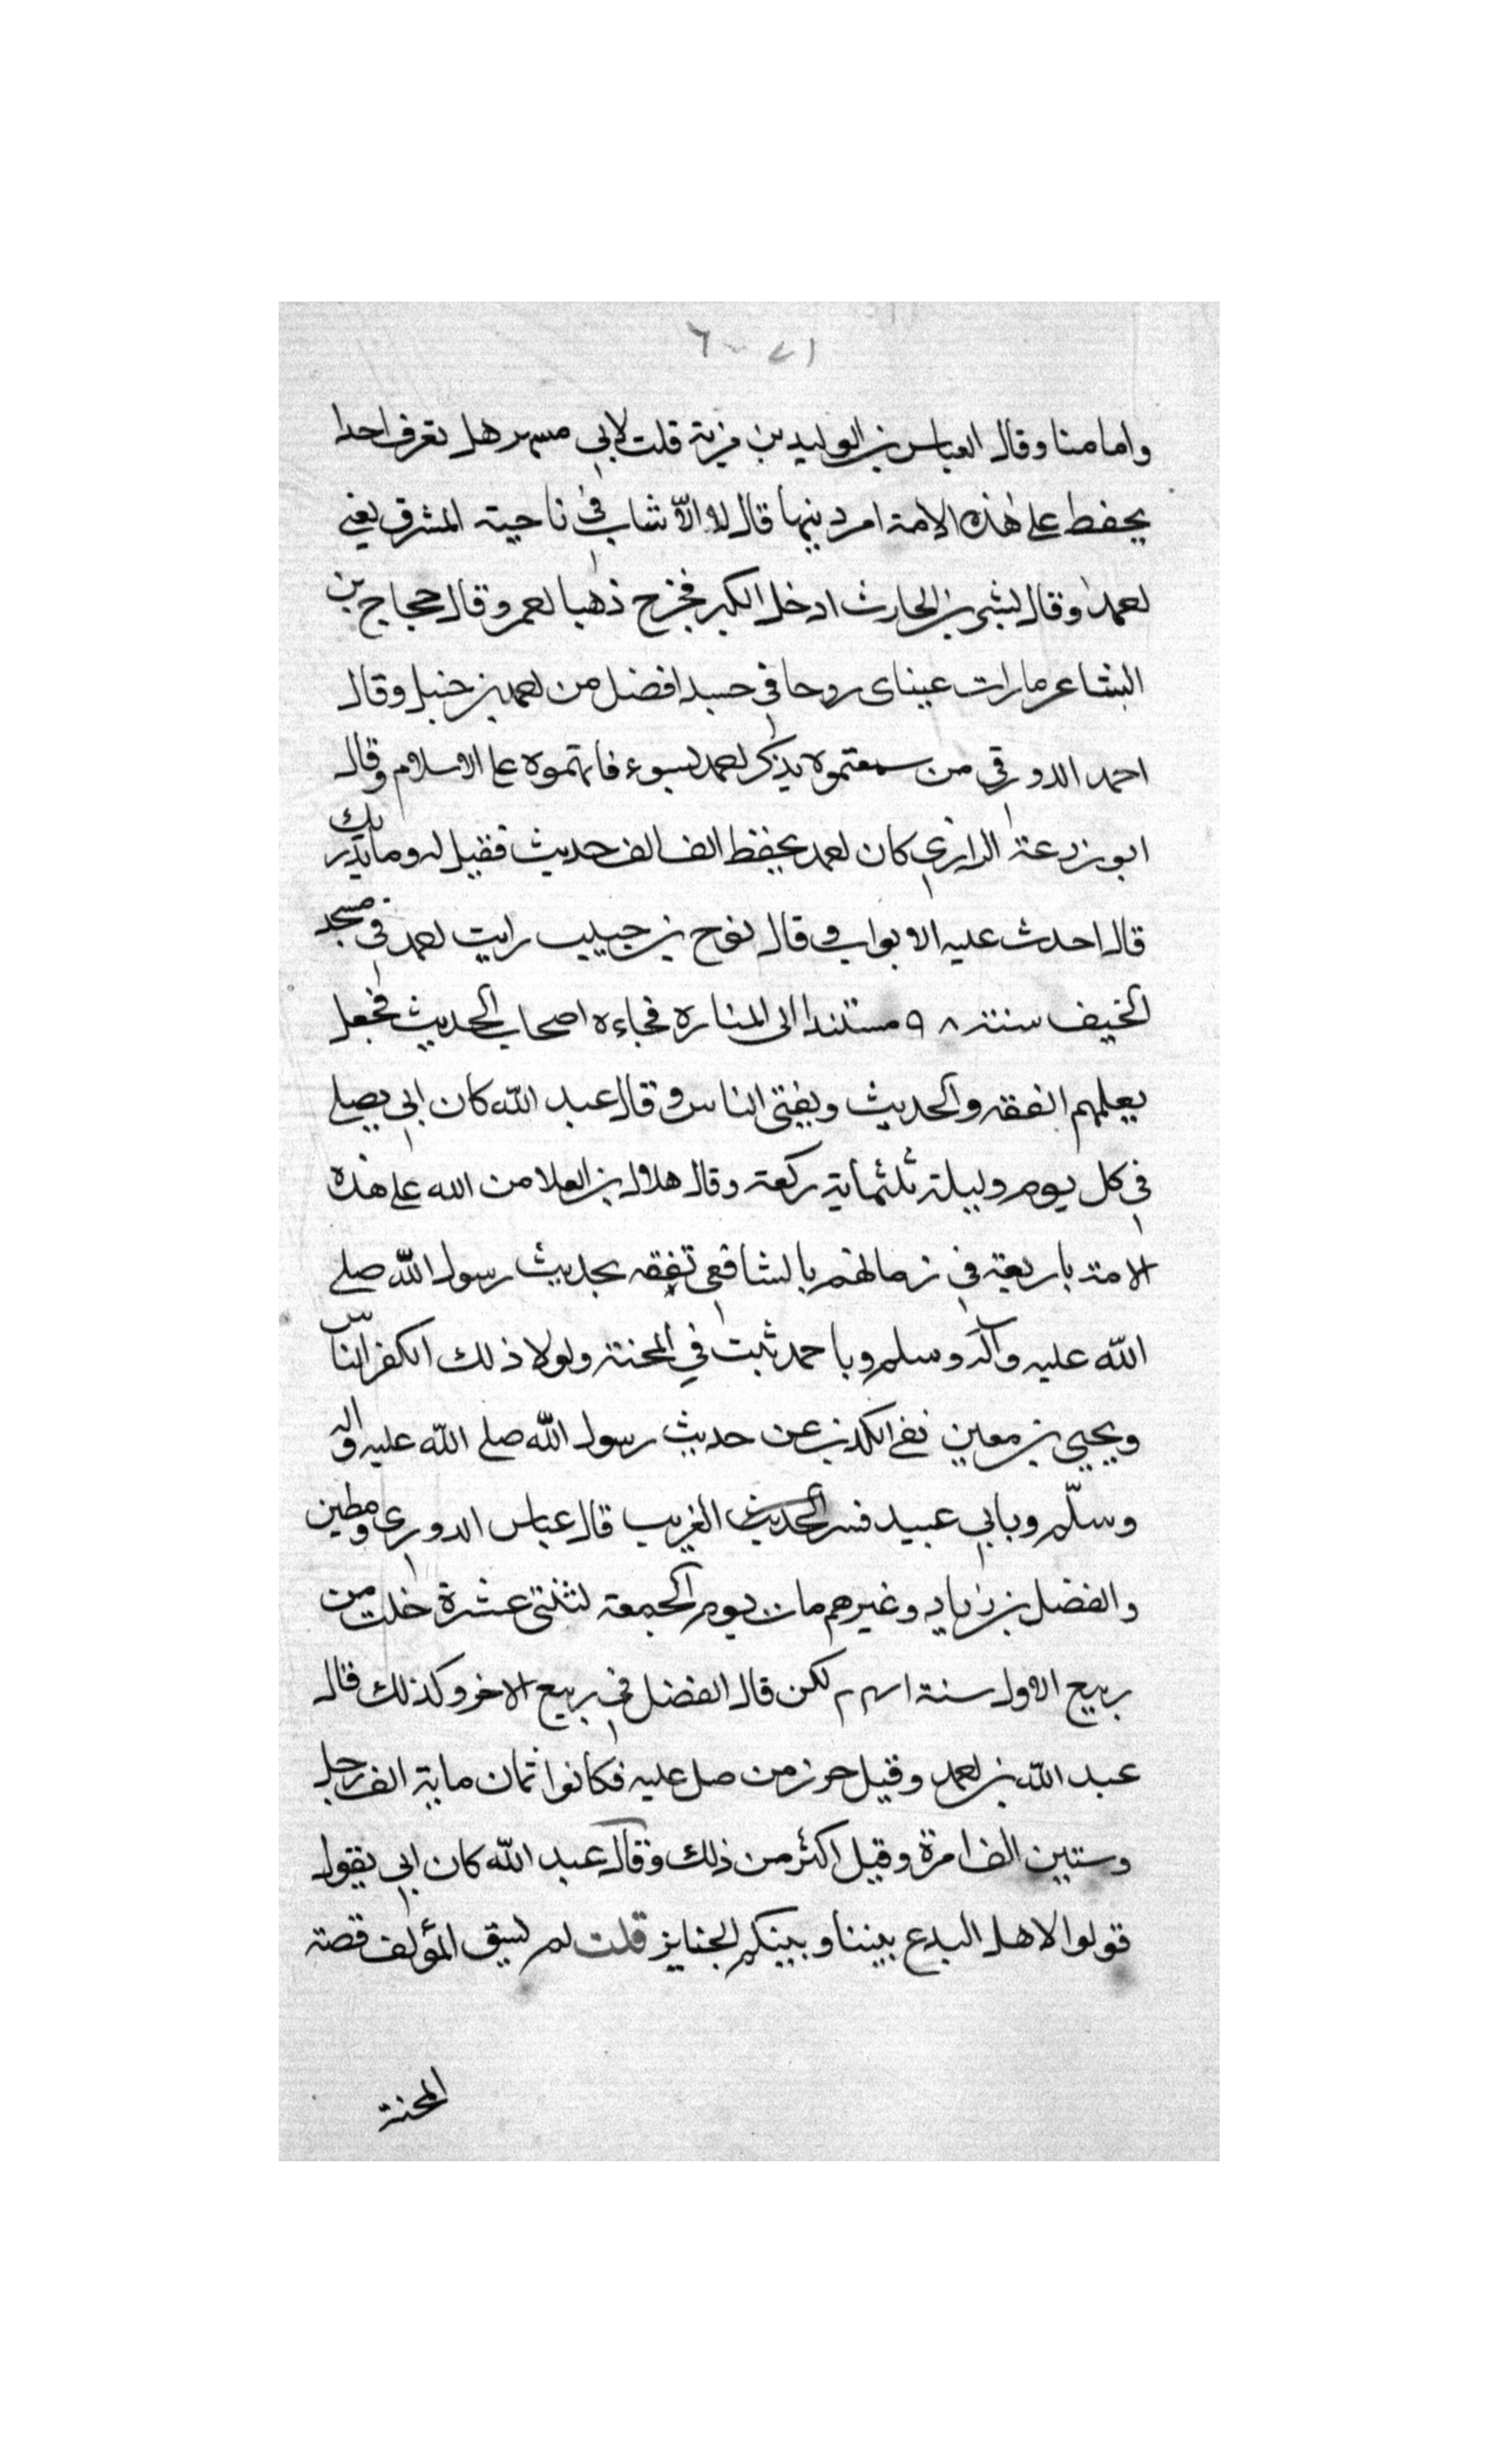 ٢١ ٦
وامامنا وقال العباس بن الوليد بن مزية قلت لابي مسهر هل تعرف احدا
يحفظ على هذه الامة امر دينها قال لا الّا شاب في ناحية المشرق يعني
احمد وقال بشر بن الحارث ادخل الكير فخرج ذهبا احمر وقال حجاج بن
الشاعر مارات عيناى روحا في جسد افضل من احمد بن حنبل وقال
احمد الدورقي من سمعتموه يذكر احمد بسوء فاتهموه على الاسلام وقال
ابو زرعة الرازي كان احمد يحفظ الف الف حديث فقيل له وما يدريك
قال اخذت عليه الابواب وقال نوح بن حبيب رايت احمد في مسجد
الخيف سنة ٩٨ مستندا الى المنارة فجاءه اصحاب الحديث فجعل
يعلمهم الفقه والحديث ويفتي الناس وقال عبد الله كان ابي يصلي
في كل يوم وليلة ثلثماية ركعة وقال هلال بن العلا من الله على هذه
الامة باربعة في زمانهم بالشافعي تفقه بحديث رسول الله صلى
الله عليه وآله وسلم وباحمد ثبت في المحنة ولولا ذلك لكفر الناس
ويحيى بن معين نفى الكذب عن حديث رسول الله صلى الله عليه واله
وسلّم وبابي عبيد فسر الحديث الغريب قال عباس الدوري ومطين
والفضل بن زياد وغيرهم مات يوم الجمعة لثنتي عشرة خلت من
ربيع الاول سنة ٢٤١ لكن قال الفضل في ربيع الاخر وكذلك قال
عبد الله بن احمد وقيل حرز من صلى عليه فكانوا ثمان ماية الف رجل
وستين الف امرة وقيل اكثر من ذلك وقال عبد الله كان ابي يقول
قولوا لاهل البدع بيننا وبينكم الجنايز قلت لم يسق المؤلف قصة
المحنة